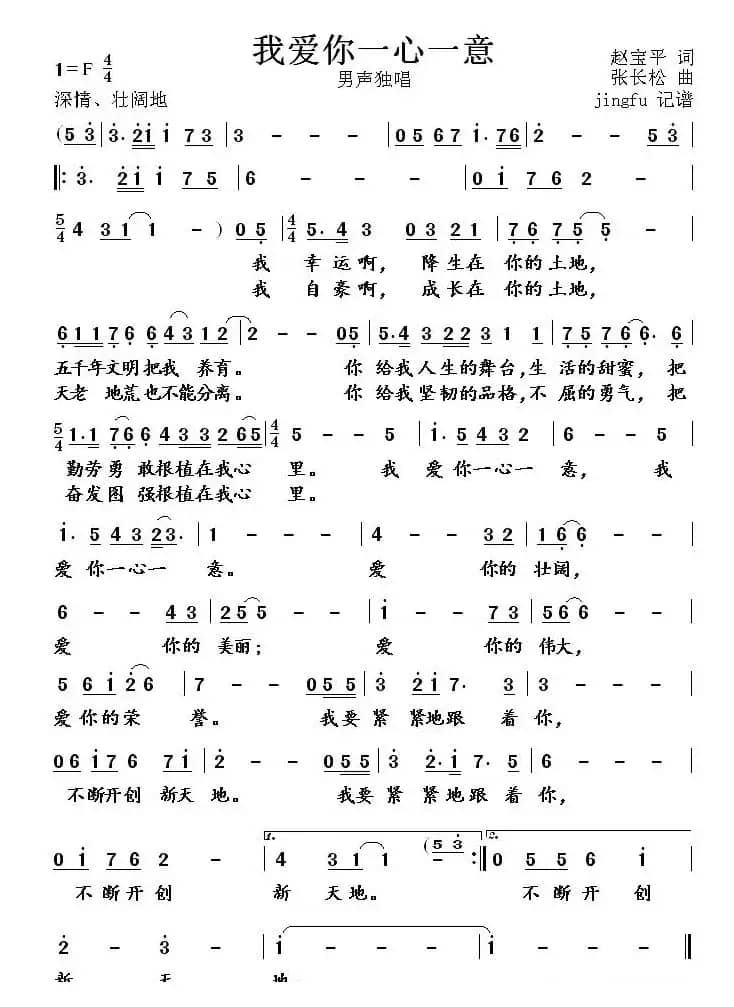 我爱你一心一意
1=F 4/4
男声独唱
赵宝平 词
张长松 曲
深情、壮阔地
jingfu 记谱
(5 3 | 3. 2 1 1 7 3 | 3 - - - | 0 5 6 7 1. 7 6 | 2 - - 5 3 |
‖: 3. 2 1 1 7 5 | 6 - - - | 0 1 7 6 2 - |
5/4 4 3 1 1 - ) 0 5 | 4/4 5. 4 3 0 3 2 1 | 7 6 7 5 5 - |
我 幸运啊, 降生在 你的土地,
我 自豪啊, 成长在 你的土地,
6 1 1 7 6 6 4 3 1 2 | 2 - - 0 5 | 5. 4 3 2 2 3 1 1 | 7 5 7 6 6. 6 |
五千年文明把我 养育。 你 给我人生的舞台,生 活的甜蜜, 把
天老 地荒也不能分离。 你 给我坚韧的品格,不 屈的勇气, 把
5/4 1. 1 7 6 6 4 3 3 2 6 5 | 4/4 5 - - 5 | 1. 5 4 3 2 | 6 - - 5 |
勤劳勇 敢根植在我心 里。 我 爱你一心一 意, 我
奋发图 强根植在我心 里。
1. 5 4 3 2 3. | 1 - - - | 4 - - 3 2 | 1 6 6 - - |
爱 你一心一 意。 爱 你的 壮阔,
6 - - 4 3 | 2 5 5 - - | 1 - - 7 3 | 5 6 6 - - |
爱 你的 美丽; 爱 你的 伟大,
5 6 1 2 6 | 7 - - - | 0 5 5 3 | 3 2 1 7. 3 | 3 - - - |
爱你的荣 誉。 我要紧 紧地跟 着你,
0 6 1 7 6 7 1 | 2 - - - | 0 5 5 3 | 3 2. 1 7. 5 | 6 - - - |
不断开创 新天 地。 我要紧 紧地跟 着你,
0 1 7 6 2 - | 1. 4 3 1 1 - (5 3 :‖ 2. 0 5 5 6 1 |
不断开创 新 天地。 不断开创
2 - 3 - | 1 - - - | 1 - - - ‖
新 天 地。